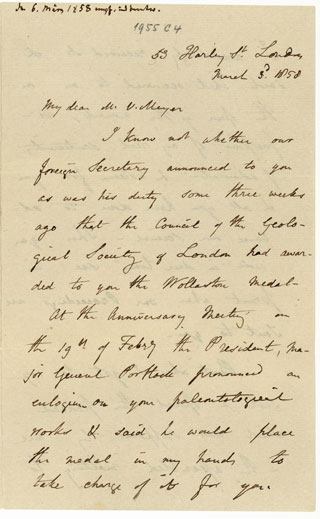 6. März 1858
1955 C 4
53 Harley St. London
March 3d 1858
My dear M. V. Meyer
I know not whether our
foreign Secretary announced to you
as was his duty some three weeks
ago that the Council of the Geolo-
gical Society of London had awar-
ded to you the Wollaston Medal-
At the Anniversary Meeting on
the 19th of Febry the President, Ma-
jor General Portlock pronounced an
eulogium on your paleontological
works & said he would place
the medal in my hands to
take charge of it for you.